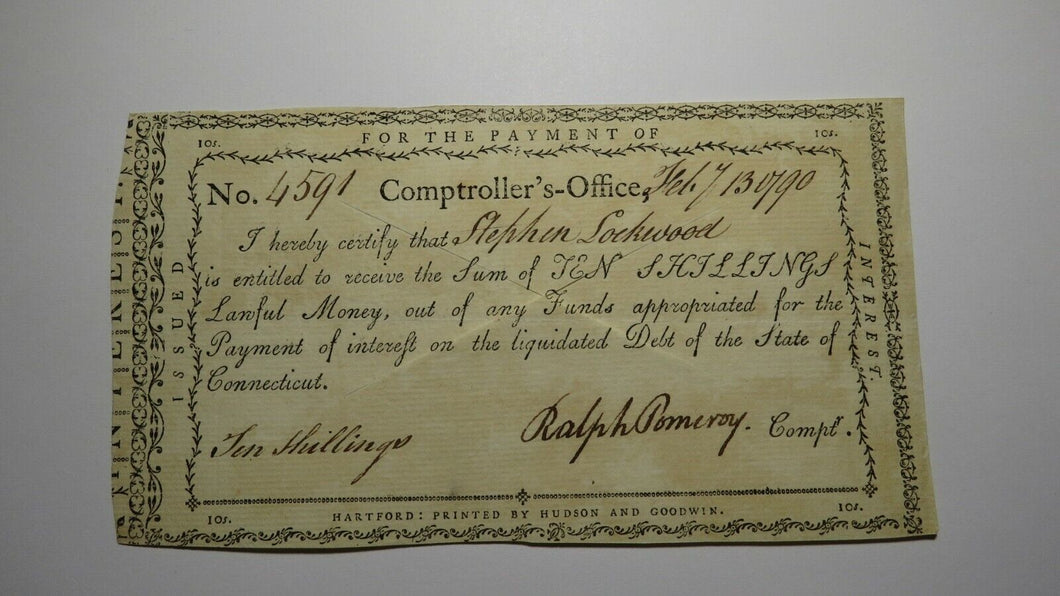 FOR THE PAYMENT OF
10s.
10s.
ISSUED
INTEREST.
No. 4591 Comptroller's-Office, Feb. 13 1790
I hereby certify that Stephen Lockwood
is entitled to receive the Sum of TEN SHILLINGS
Lawful Money, out of any Funds appropriated for the
Payment of interest on the liquidated Debt of the State of
Connecticut.
Ten Shillings
Ralph Pomeroy. Comptr.
10s.
10s.
HARTFORD: PRINTED BY HUDSON AND GOODWIN.